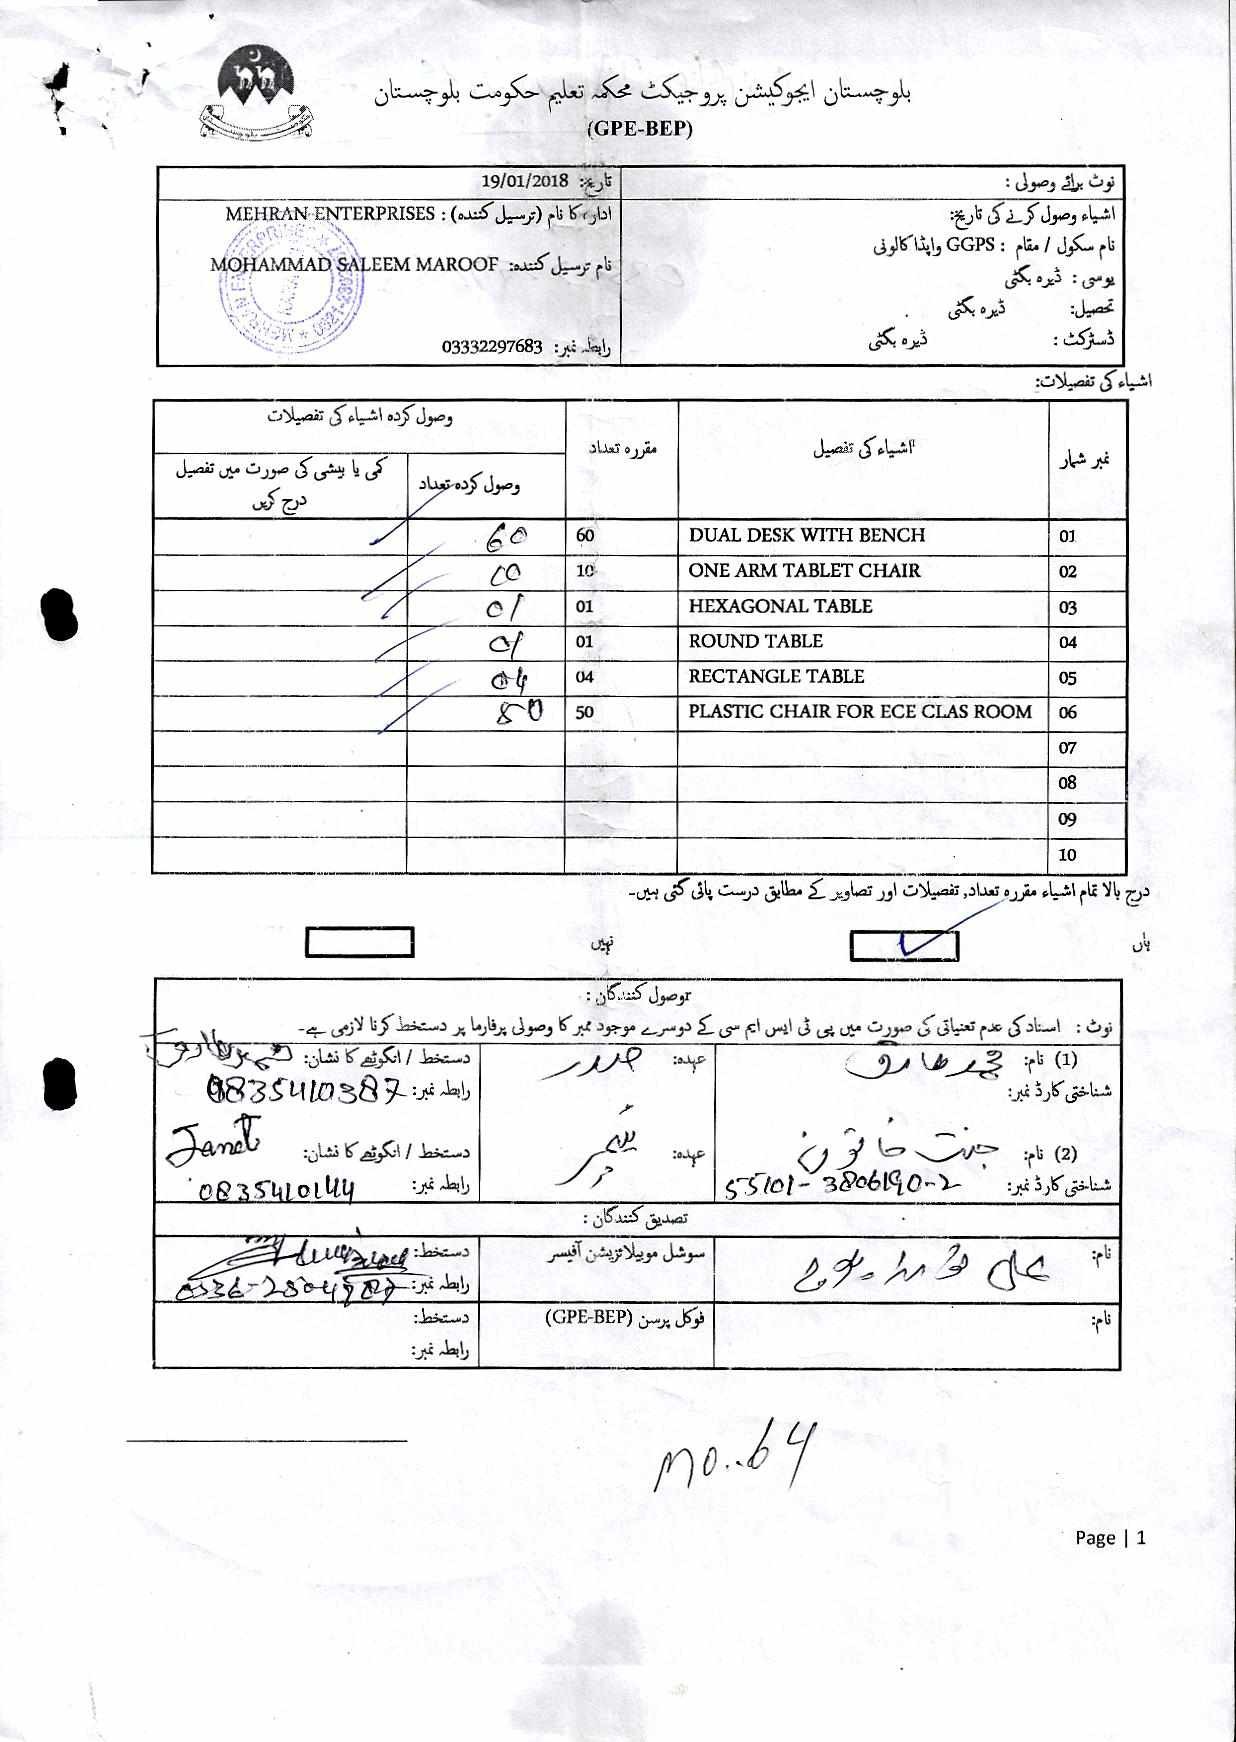 بلوچستان ایجوکیشن پروجیکٹ محکمہ تعلیم حکومت بلوچستان
(GPE-BEP)
نوٹ برائے وصولی :
تاریخ: 19/01/2018
اشیاء وصول کرنے کی تاریخ:
ادارہ کا نام (ترسیل کنندہ) : MEHRAN ENTERPRISES
نام سکول / مقام : GGPS واپڈا کالونی
نام ترسیل کنندہ: MOHAMMAD SALEEM MAROOF
یوسی : ڈیرہ بگٹی
تحصیل: ڈیرہ بگٹی
ڈسٹرکٹ : ڈیرہ بگٹی
رابطہ نمبر: 03332297683
اشیاء کی تفصیلات:
نمبر شمار اشیاء کی تفصیل مقررہ تعداد وصول کردہ اشیاء کی تفصیلات
وصول کردہ تعداد کمی یا بیشی کی صورت میں تفصیل درج کریں
01 DUAL DESK WITH BENCH 60 60
02 ONE ARM TABLET CHAIR 10 10
03 HEXAGONAL TABLE 01 01
04 ROUND TABLE 01 01
05 RECTANGLE TABLE 04 04
06 PLASTIC CHAIR FOR ECE CLAS ROOM 50 50
07
08
09
10
درج بالا تمام اشیاء مقررہ تعداد, تفصیلات اور تصاویر کے مطابق درست پائی گئی ہیں۔
ہاں نہیں
وصول کنندگان :
نوٹ : اسناد کی عدم تعنیاتی کی صورت میں پی ٹی ایس ایم سی کے دوسرے موجود ممبر کا وصولی پرفارما پر دستخط کرنا لازمی ہے۔
(1) نام: محمد طارق عہدہ: صدر دستخط / انگوٹھے کا نشان:
شناختی کارڈ نمبر: رابطہ نمبر: 0835410387
(2) نام: جنت خاتون عہدہ: دستخط / انگوٹھے کا نشان: Janat
شناختی کارڈ نمبر: 55101-3806190-2 رابطہ نمبر: 0835410144
تصدیق کنندگان :
نام: سوشل موبیلائزیشن آفیسر دستخط:
رابطہ نمبر:
نام: فوکل پرسن (GPE-BEP) دستخط:
رابطہ نمبر:
mo..64
Page | 1